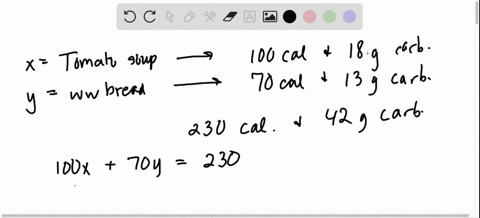 x = Tomato soup → 100 cal & 18 g carb.
y = ww bread → 70 cal & 13 g carb.
230 cal. & 42 g carb.
100x + 70y = 230